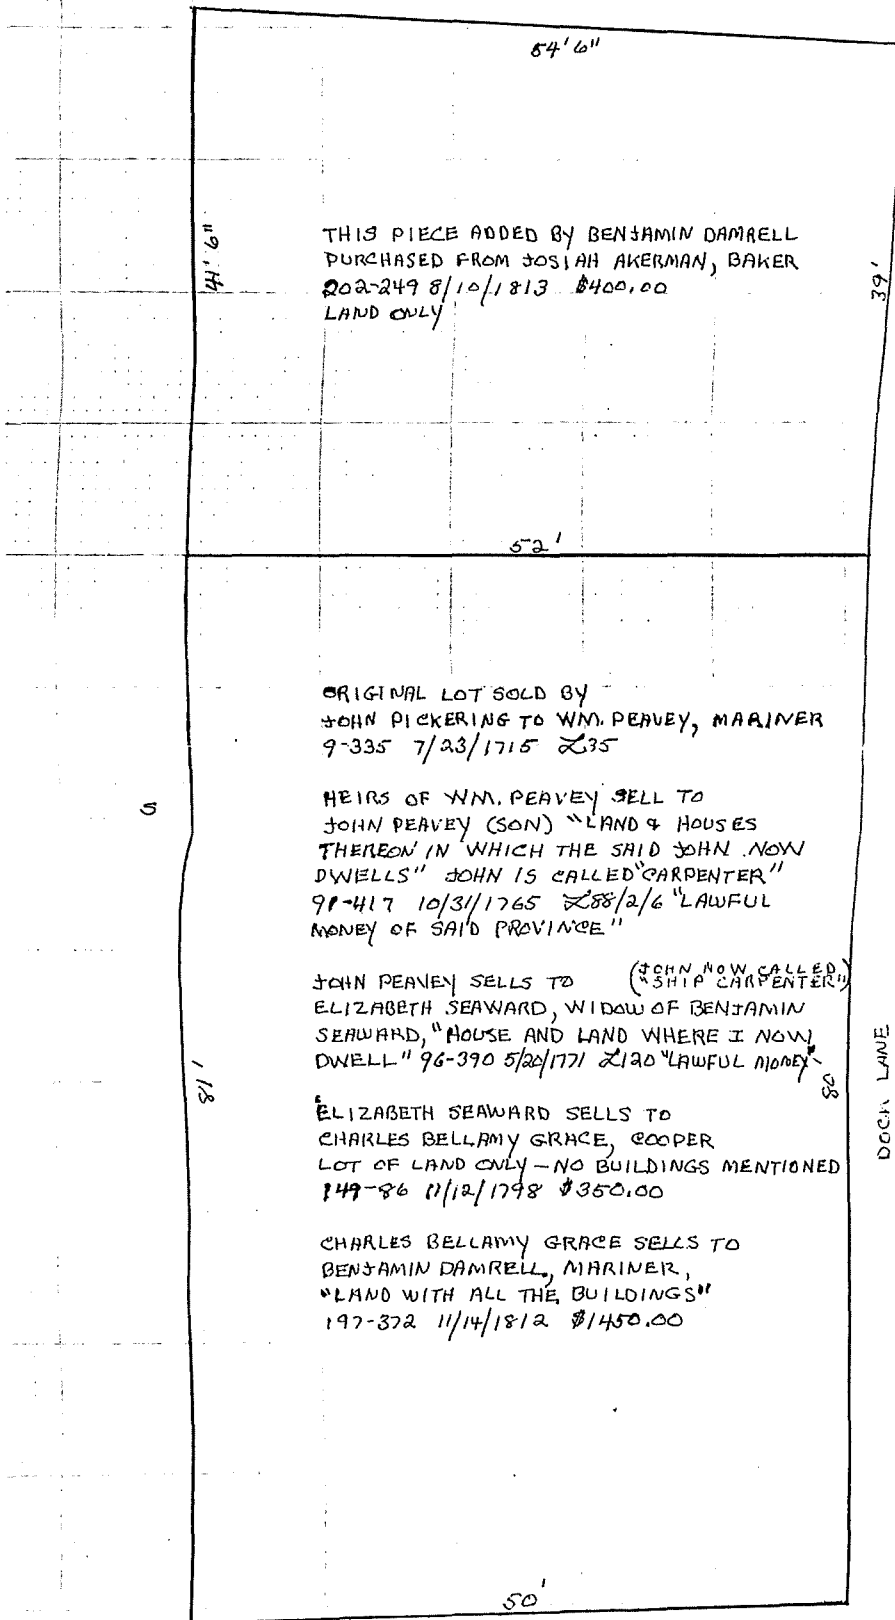 54'6"
41'9"
THIS PIECE ADDED BY BENJAMIN DAMRELL
PURCHASED FROM JOSIAH AKERMAN, BAKER
202-249 8/10/1813 $400.00
LAND ONLY
39'
52'
ORIGINAL LOT SOLD BY
JOHN PICKERING TO WM. PEAVEY, MARINER
9-335 7/23/1715 £35
HEIRS OF WM. PEAVEY SELL TO
JOHN PEAVEY (SON) "LAND & HOUSES
THEREON IN WHICH THE SAID JOHN NOW
DWELLS" JOHN IS CALLED "CARPENTER"
91-417 10/31/1765 £88/2/6 "LAWFUL
MONEY OF SAID PROVINCE"
JOHN PEAVEY SELLS TO (JOHN NOW CALLED "SHIP CARPENTER")
ELIZABETH SEAWARD, WIDOW OF BENJAMIN
SEAWARD, "HOUSE AND LAND WHERE I NOW
DWELL" 96-390 5/20/1771 £120 "LAWFUL MONEY"
81'
80'
DOCK LANE
ELIZABETH SEAWARD SELLS TO
CHARLES BELLAMY GRACE, COOPER
LOT OF LAND ONLY - NO BUILDINGS MENTIONED
149-86 11/12/1798 $350.00
CHARLES BELLAMY GRACE SELLS TO
BENJAMIN DAMRELL, MARINER,
"LAND WITH ALL THE BUILDINGS"
197-372 11/14/1812 $1450.00
50'